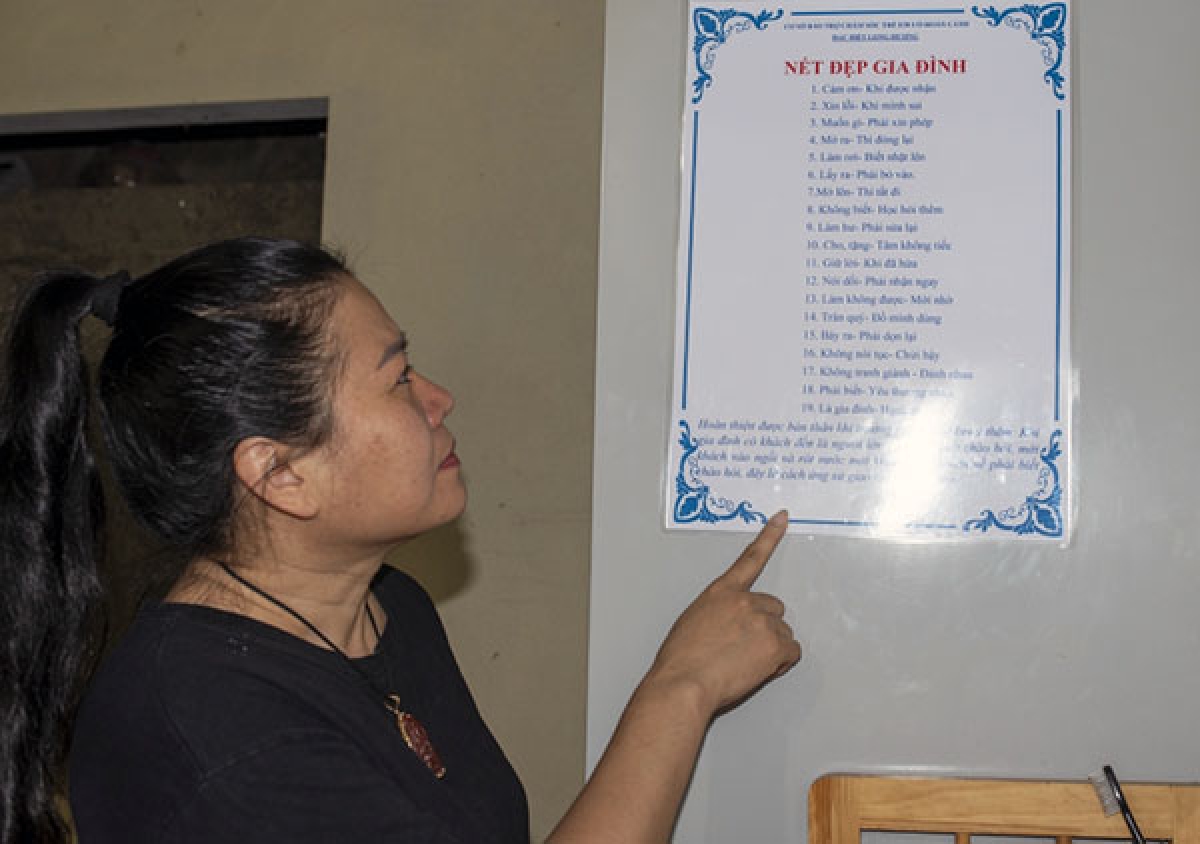 CƠ SỞ BẢO TRỢ CHĂM SÓC TRẺ EM CÓ HOÀN CẢNH
ĐẶC BIỆT LONG HƯƠNG
NÉT ĐẸP GIA ĐÌNH
1. Cám ơn- Khi được nhận
2. Xin lỗi- Khi mình sai
3. Muốn gì- Phải xin phép
4. Mở ra- Thì đóng lại
5. Làm rơi- Biết nhặt lên
6. Lấy ra- Phải bỏ vào.
7.Mở lên- Thì tắt đi
8. Không biết- Học hỏi thêm
9. Làm hư- Phải sửa lại
10. Cho, tặng- Tâm không tiếc
11. Giữ lời- Khi đã hứa
12. Nói dối- Phải nhận ngay
13. Làm không được- Mới nhờ
14. Trân quý- Đồ mình dùng
15. Bày ra- Phải dọn lại
16. Không nói tục- Chửi bậy
17. Không tranh giành - Đánh nhau
18. Phải biết- Yêu thương
19. Là gia đình-
Hoàn thiện được bản thân khi thêm. Khi
gia đình có khách đến là người lớn chào hỏi, mời
khách vào ngồi và rót nước mời phải biết
chào hỏi, đây là cách ứng xử